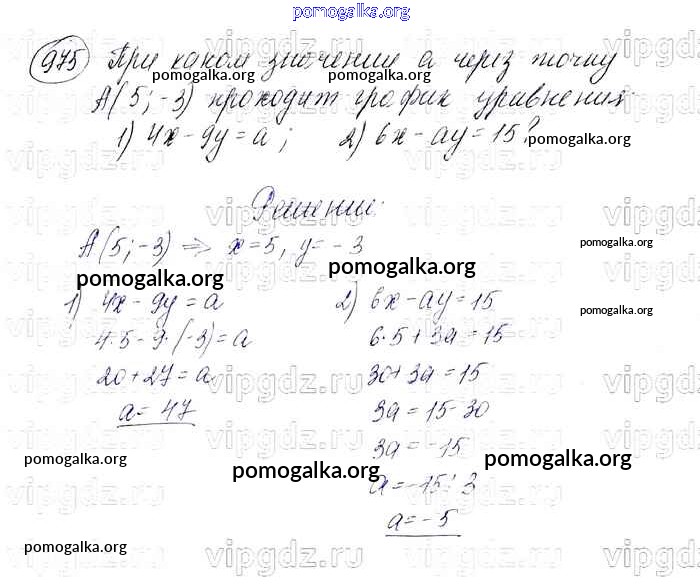 pomogalka.org
975 При каком значении a через точку
A(5; -3) проходит график уравнения:
1) 4x - 9y = a; 2) 6x - ay = 15?
Решение:
A(5; -3) => x = 5, y = -3
1) 4x - 9y = a
4·5 - 9·(-3) = a
20 + 27 = a
a = 47
2) 6x - ay = 15
6·5 + 3a = 15
30 + 3a = 15
3a = 15 - 30
3a = -15
a = -15 : 3
a = -5
pomogalka.org
pomogalka.org
pomogalka.org
pomogalka.org
pomogalka.org
pomogalka.org
pomogalka.org
pomogalka.org
pomogalka.org
pomogalka.org
pomogalka.org
pomogalka.org
vipgdz.ru
vipgdz.ru
vipgdz.ru